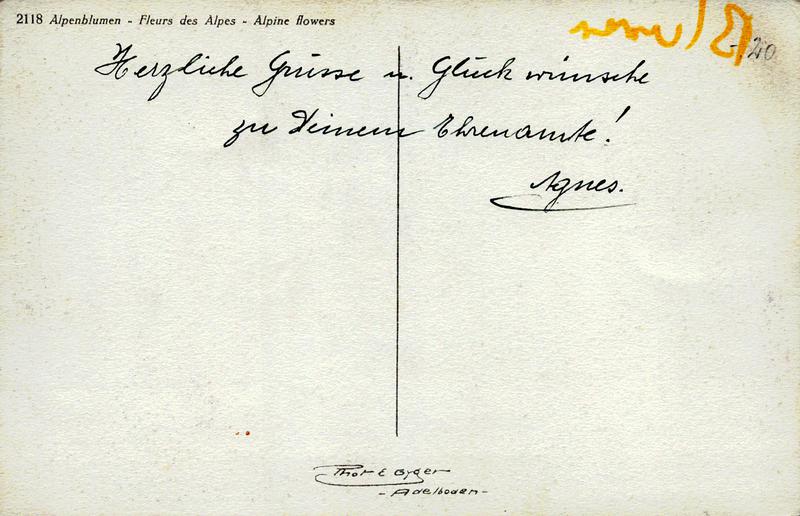 2118 Alpenblumen - Fleurs des Alpes - Alpine flowers
20
Herzliche Grüsse u. Glückwünsche
zu Deinem Ehrenamte!
Agnes.
Phot E Gyger
- Adelboden -